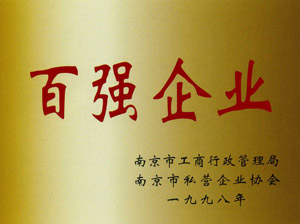 百强企业
南京市工商行政管理局
南京市私营企业协会
一九九八年